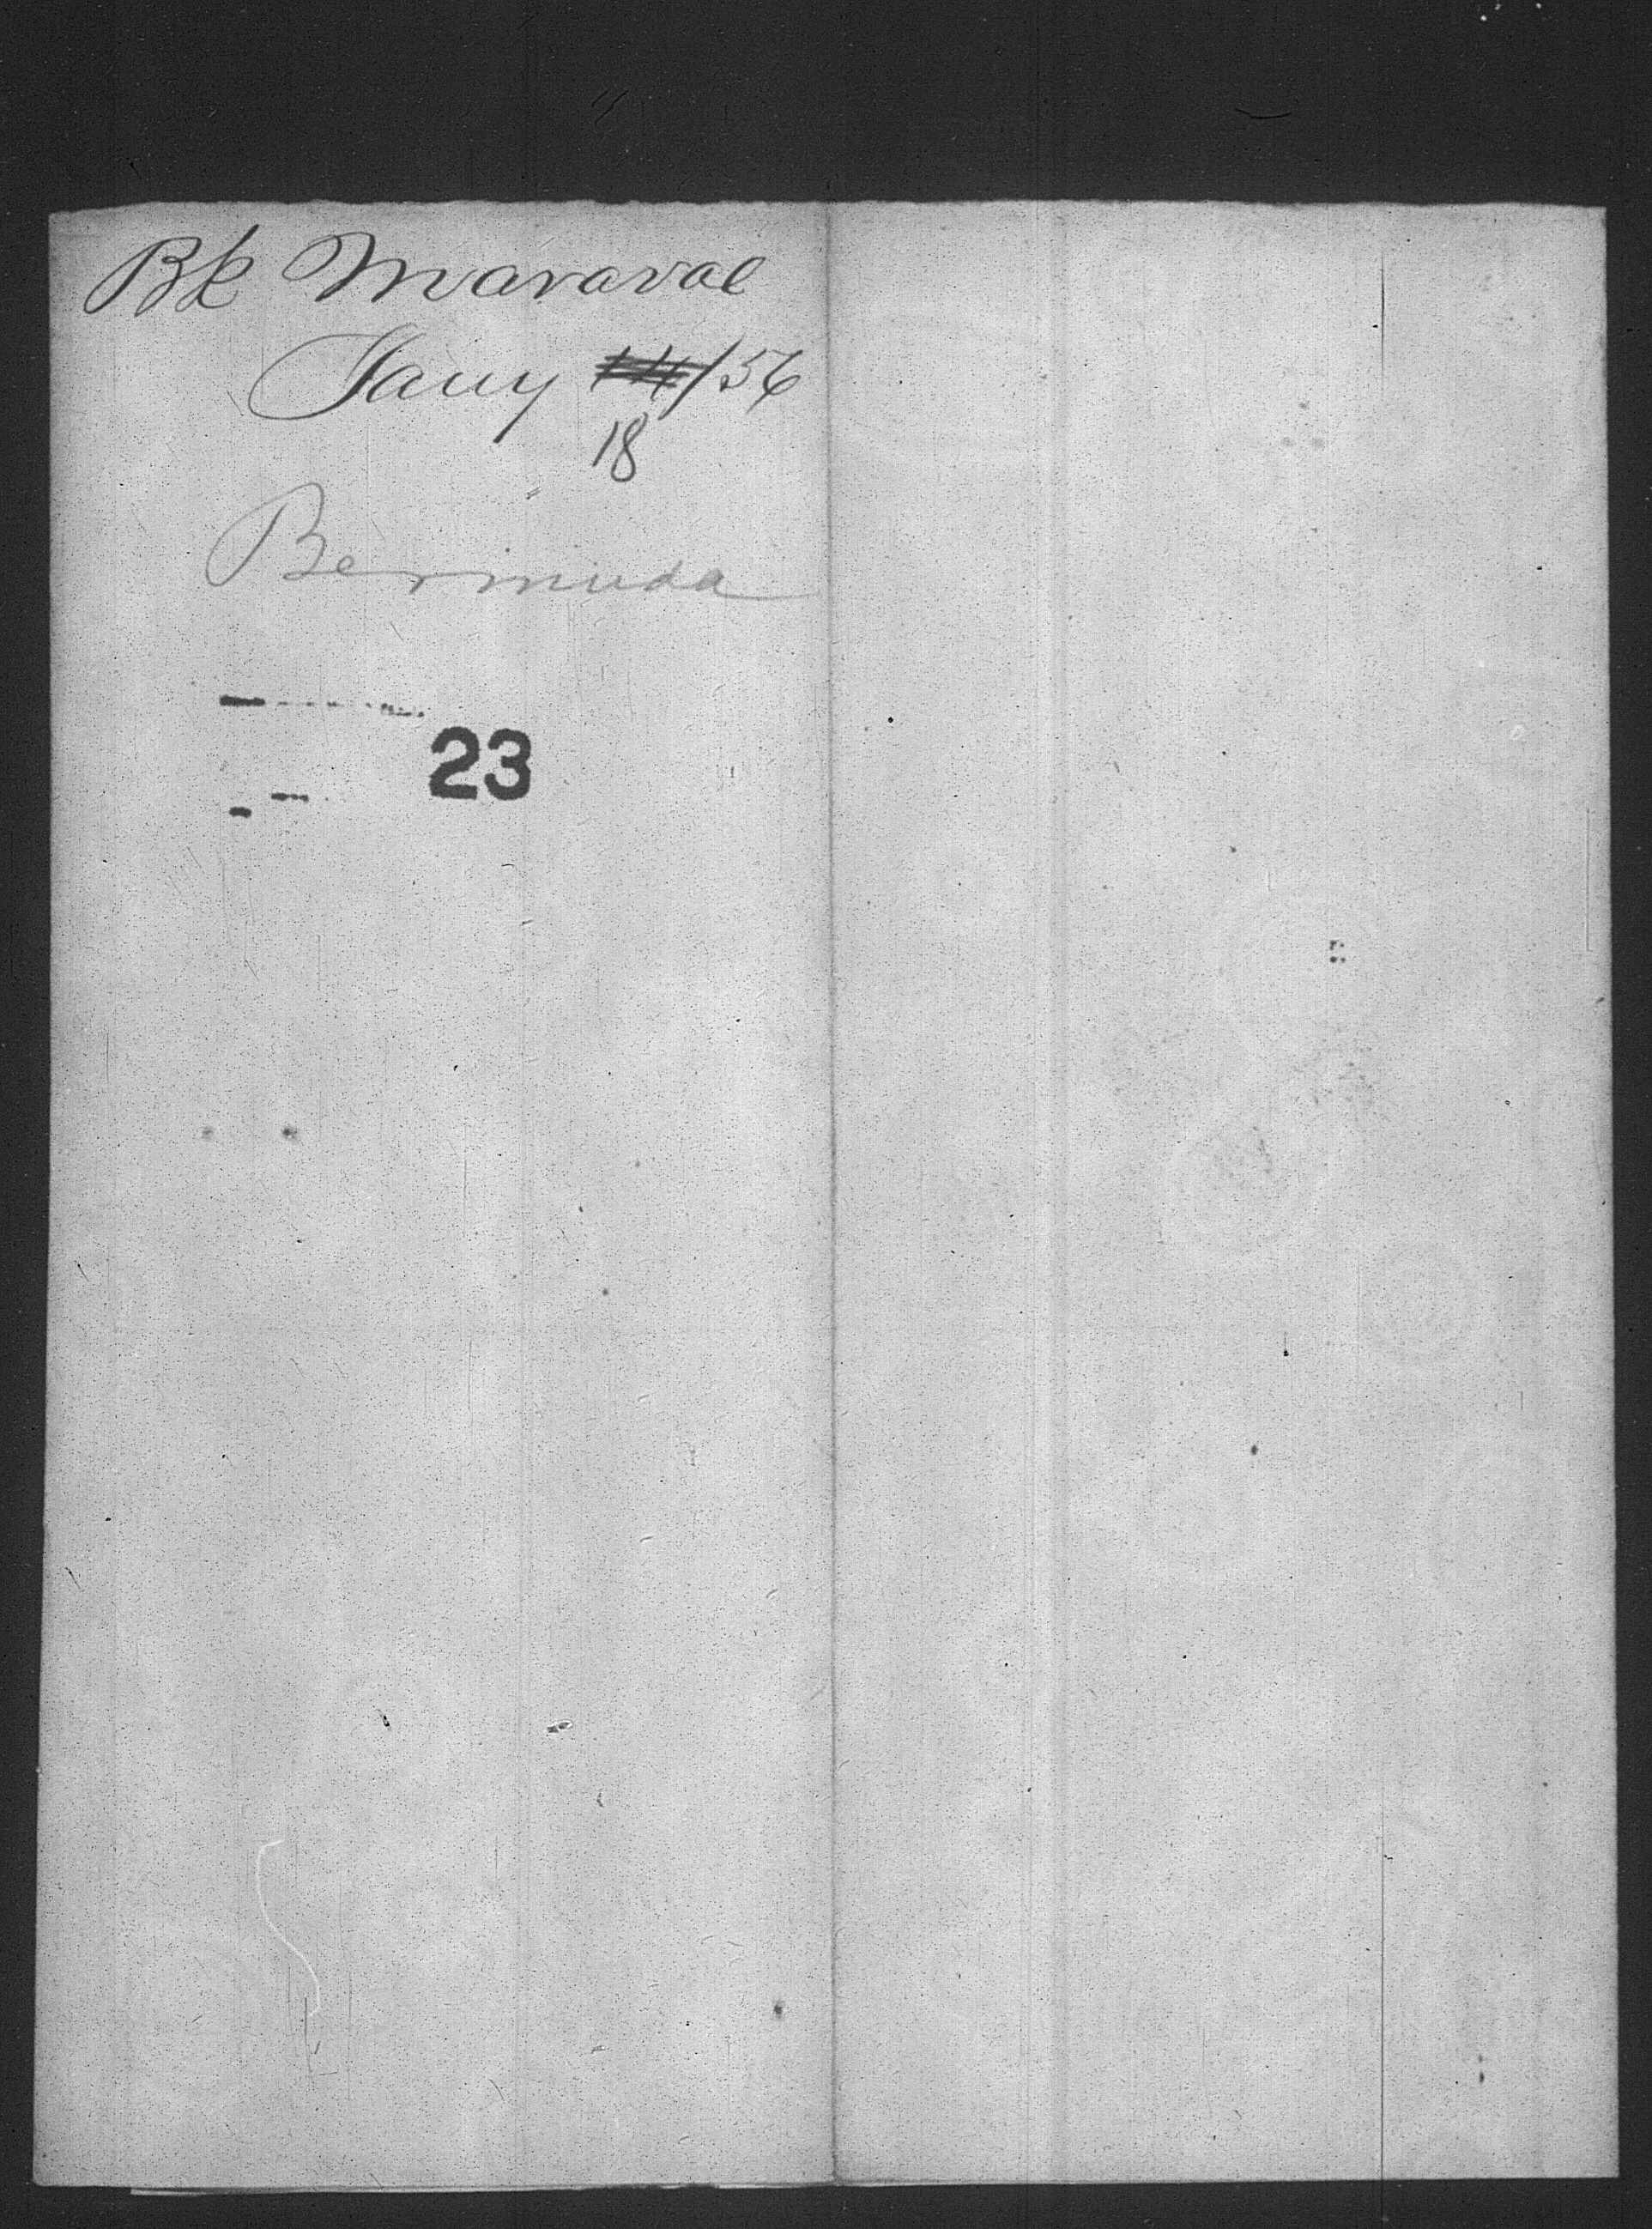 Bk Maraval
Jany 14/56
18
Bermuda
23